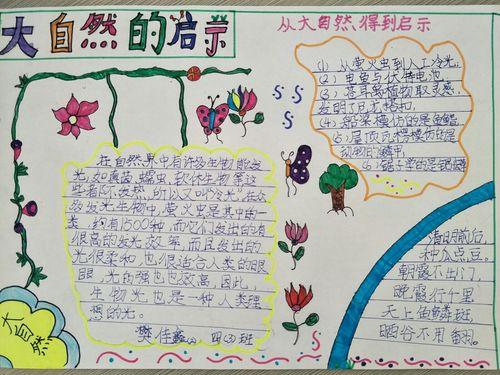 大自然的启示
从大自然,得到启示
(1) 从萤火虫到人工冷光,
(2) 电鱼与伏特电池,
(3) 苍耳属植物取灵感
发明了尼龙搭扣。
(4) 船桨模仿的是
(5) 屋顶瓦楞模仿的是
动物的鳞甲
(6) 锯子学的是
在自然界中有许多生物能发
光,如真菌、蠕虫、软体生物等这
些都不发热,所以又叫冷光,在众
多发光生物中,萤火虫是其中的一
类,约有1500种,而它们发出的有
很高的发光效率,而且发出的
光很柔和,也很适合人类的眼
眼,光的强也也效高,因此,
生物光也是一种人类理
想的光。
樊佳 四(3)班
大自然
清明前后,
种瓜点豆。
朝霞不出门,
晚霞行千里
天上鱼鳞斑,
晒谷不用翻。